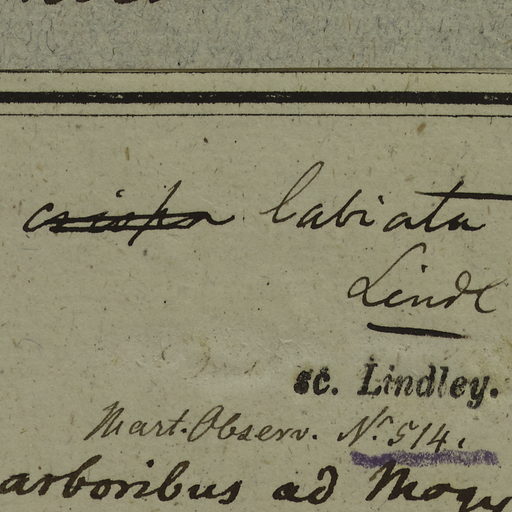 crispa labiata
Lindl
sc. Lindley.
Mart. Observ. Nr. 514.
arboribus ad Mogy